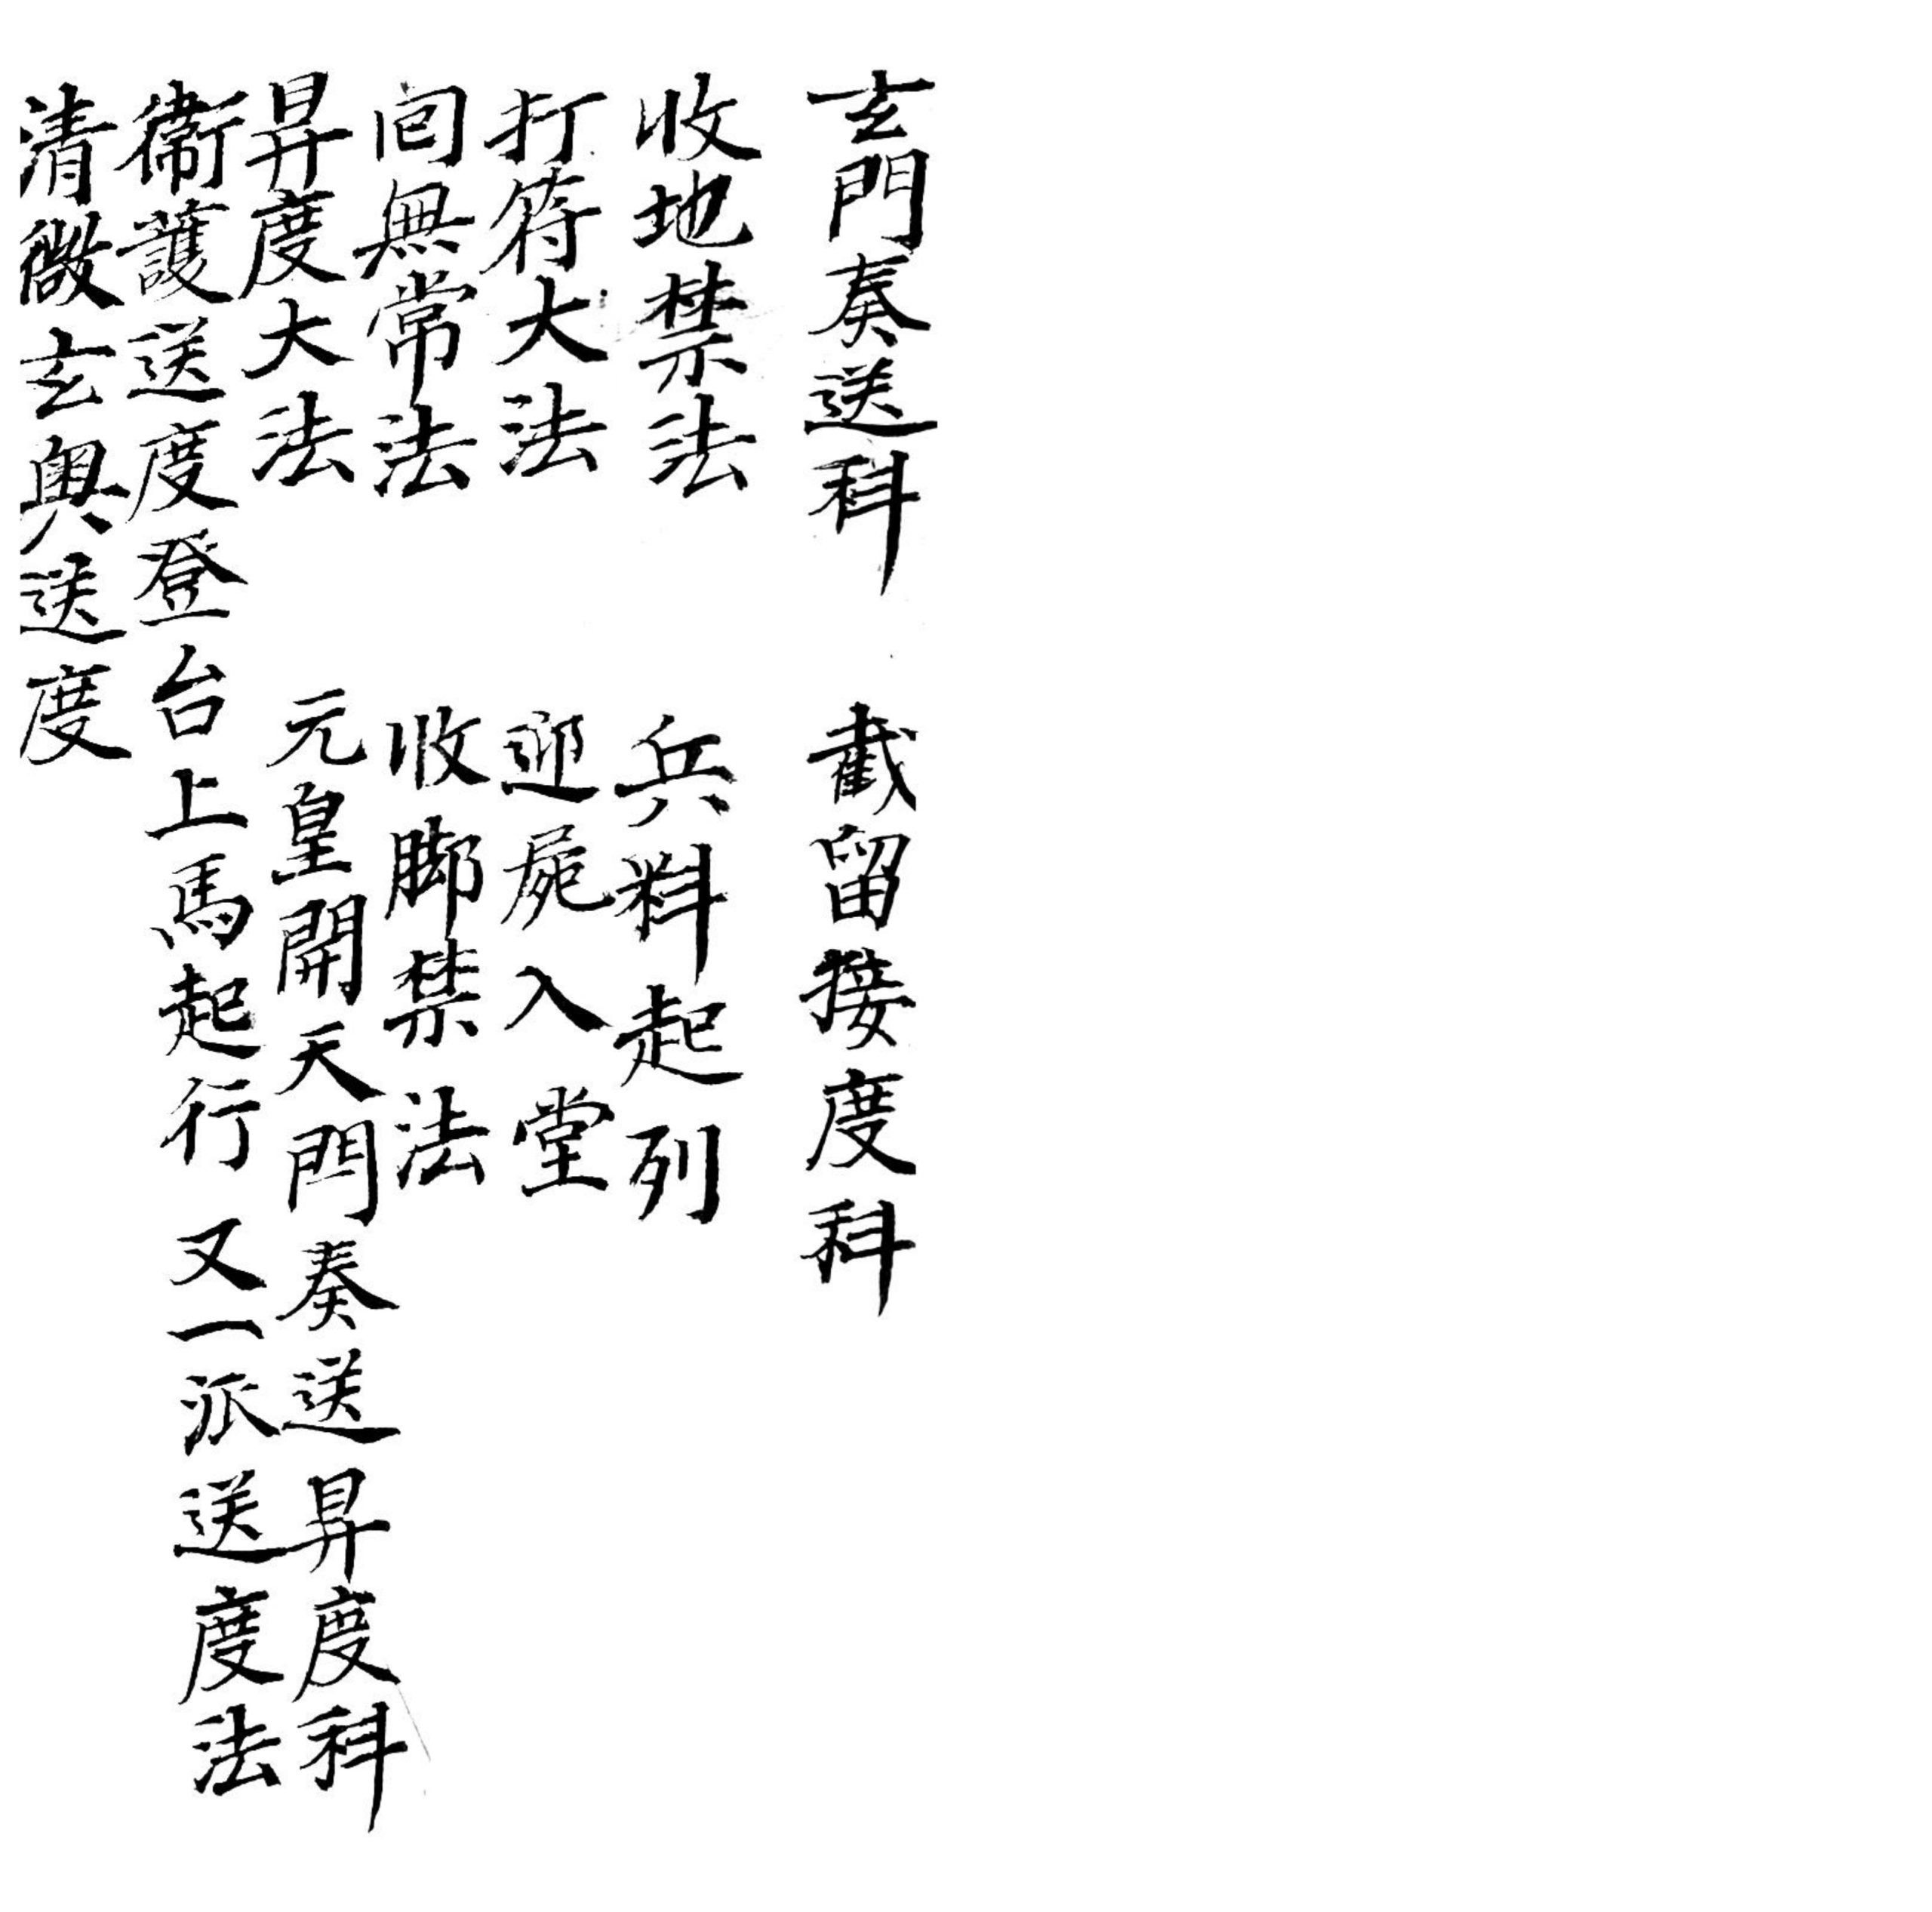 玄門奏送科　截留接度科
收地禁法　兵料起列
打符大法　迎屍入堂
回無常法　收脚禁法
昇度大法　元皇開天門奏送昇度科
衛護送度登台上馬起行　又一派送度法
清微玄奥送度